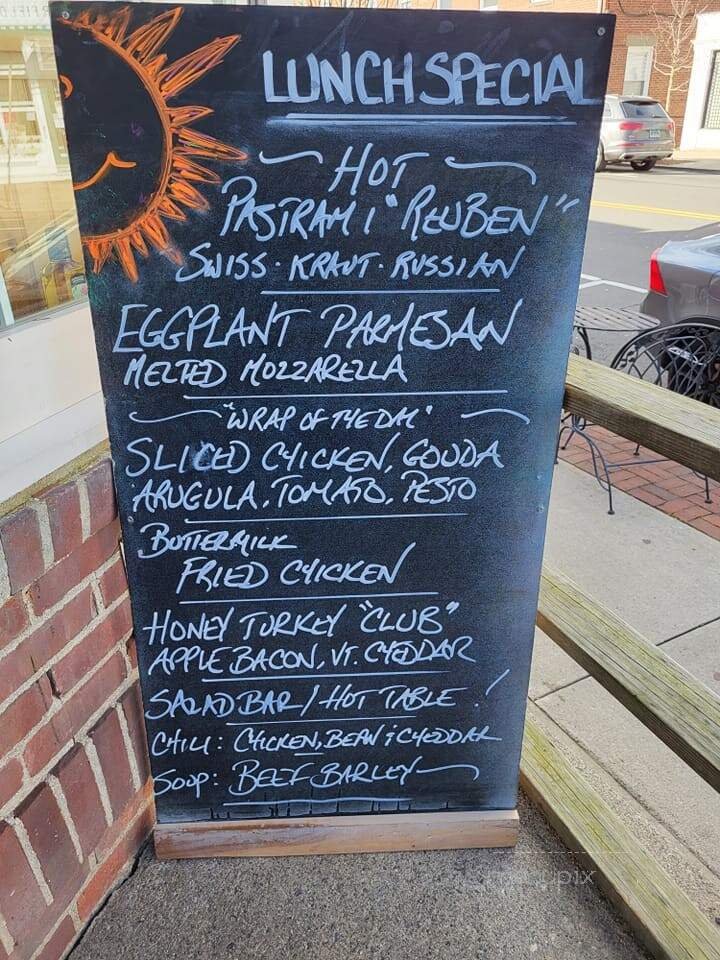 LUNCH SPECIAL
HOT
PASTRAMI "REUBEN"
SWISS · KRAUT · RUSSIAN
EGGPLANT PARMESAN
MELTED MOZZARELLA
"WRAP OF THE DAY"
SLICED CHICKEN, GOUDA
ARUGULA, TOMATO, PESTO
BUTTERMILK
FRIED CHICKEN
HONEY TURKEY "CLUB"
APPLE BACON, VT. CHEDDAR
SALAD BAR / HOT TABLE!
CHILI: CHICKEN, BEAN & CHEDDAR
SOUP: BEEF BARLEY